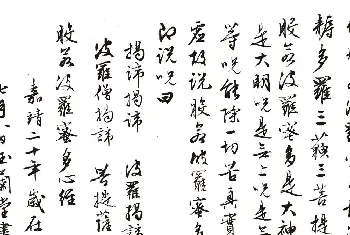 耨多羅三藐三菩提
般若波羅蜜多是大神
是大明呪是无上呪是无
等呪能除一切苦真實
虛故說般若波羅蜜多
即說呪曰
揭諦揭諦 波羅揭諦
波羅僧揭諦 菩提薩
般若波羅蜜多心經
嘉靖二十年歲在
日玉蘭堂書